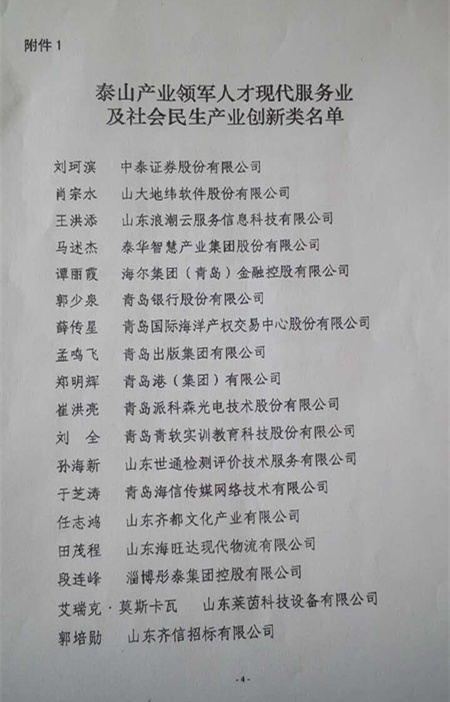 附件1
泰山产业领军人才现代服务业
及社会民生产业创新类名单
刘珂滨 中泰证券股份有限公司
肖宗水 山大地纬软件股份有限公司
王洪添 山东浪潮云服务信息科技有限公司
马述杰 泰华智慧产业集团股份有限公司
谭丽霞 海尔集团（青岛）金融控股有限公司
郭少泉 青岛银行股份有限公司
薛传星 青岛国际海洋产权交易中心股份有限公司
孟鸣飞 青岛出版集团有限公司
郑明辉 青岛港（集团）有限公司
崔洪亮 青岛派科森光电技术股份有限公司
刘 全 青岛青软实训教育科技股份有限公司
孙海新 山东世通检测评价技术服务有限公司
于芝涛 青岛海信传媒网络技术有限公司
任志鸿 山东齐都文化产业有限公司
田茂程 山东海旺达现代物流有限公司
段连峰 淄博彤泰集团控股有限公司
艾瑞克·莫斯卡瓦 山东莱茵科技设备有限公司
郭培勋 山东齐信招标有限公司
-4-